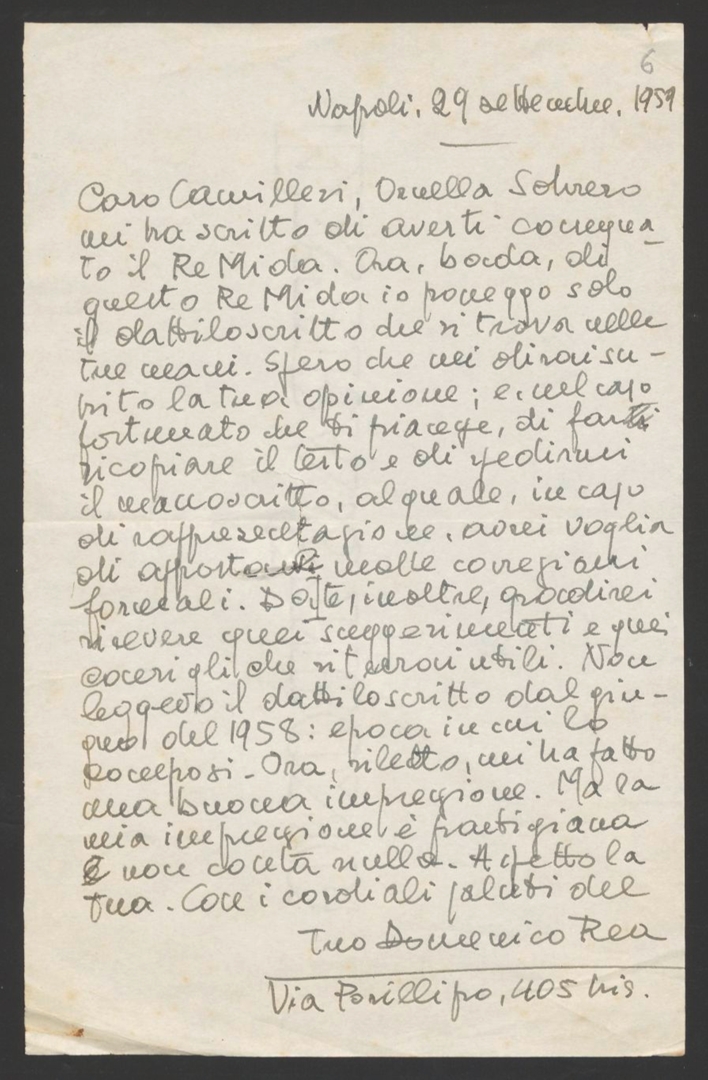 6
Napoli, 29 settembre, 1959
Caro Camilleri, Ornella Sobrero
mi ha scritto di averti consegna-
to il Re Mida. Ora, bada, di
questo Re Mida io posseggo solo
il dattiloscritto che si trova nelle
tue mani. Spero che mi dirai su-
bito la tua opinione; e, nel caso
fortunato che ti piacesse, di farti
ricopiare il testo e di spedirmi
il manoscritto, al quale, in caso
di rappresentazione, avrei voglia
di apportare molte correzioni
formali. Da te, inoltre, gradirei
ricevere quei suggerimenti e quei
consigli che riterrai utili. Non
leggevo il dattiloscritto dal giu-
gno del 1958: epoca in cui lo
composi. Ora, riletto, mi ha fatto
una buona impressione. Ma la
mia impressione è partigiana
e non conta nulla. Aspetto la
tua. Con i cordiali saluti del
Tuo Domenico Rea
Via Posillipo, 405 bis.